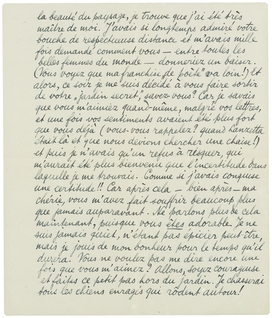 la beauté du paysage, je trouve que j'ai été très
maître de moi. J'avais si longtemps admiré votre
bouche de respectueuse distance et m'avais mille
fois demandé comment vous – entre toutes les
belles femmes du monde – donneriez un baiser.
(Vous voyez que ma franchise, de poète va loin!) Et
alors, ce soir je me suis décidé à vous faire sortir
de votre "jardin secret", savez-vous? Car je savais
que vous m'aimiez quand-même, malgré vos lettres,
et une fois vos sentiments avaient été plus fort
que vous déjà (vous-vous rappelez? quand
était là et que nous devions chercher une chaise!)
et puis je n'avais qu'un refus à risquer, qui
m'aurait été plus bienvenu que l'incertitude dans
laquelle je me trouvais. Comme si j'avais conquise
une certitude!! Car après cela – bien après – ma
chérie, vous m'avez fait souffrir beaucoup plus
que jamais auparavant. Ne parlons plus de cela
maintenant, puisque vous êtes adorable. Je ne
suis jamais guéri, n'étant pas épicier peut-être,
mais je jouis de mon bonheur pour le temps qu'il
durera! Vous ne voulez pas me dire encore une
fois que vous m'aimez? Allons, soyez courageuse
et faites ce petit pas hors du jardin. Je chasserai
tous les chiens enragés qui rôdent autour!